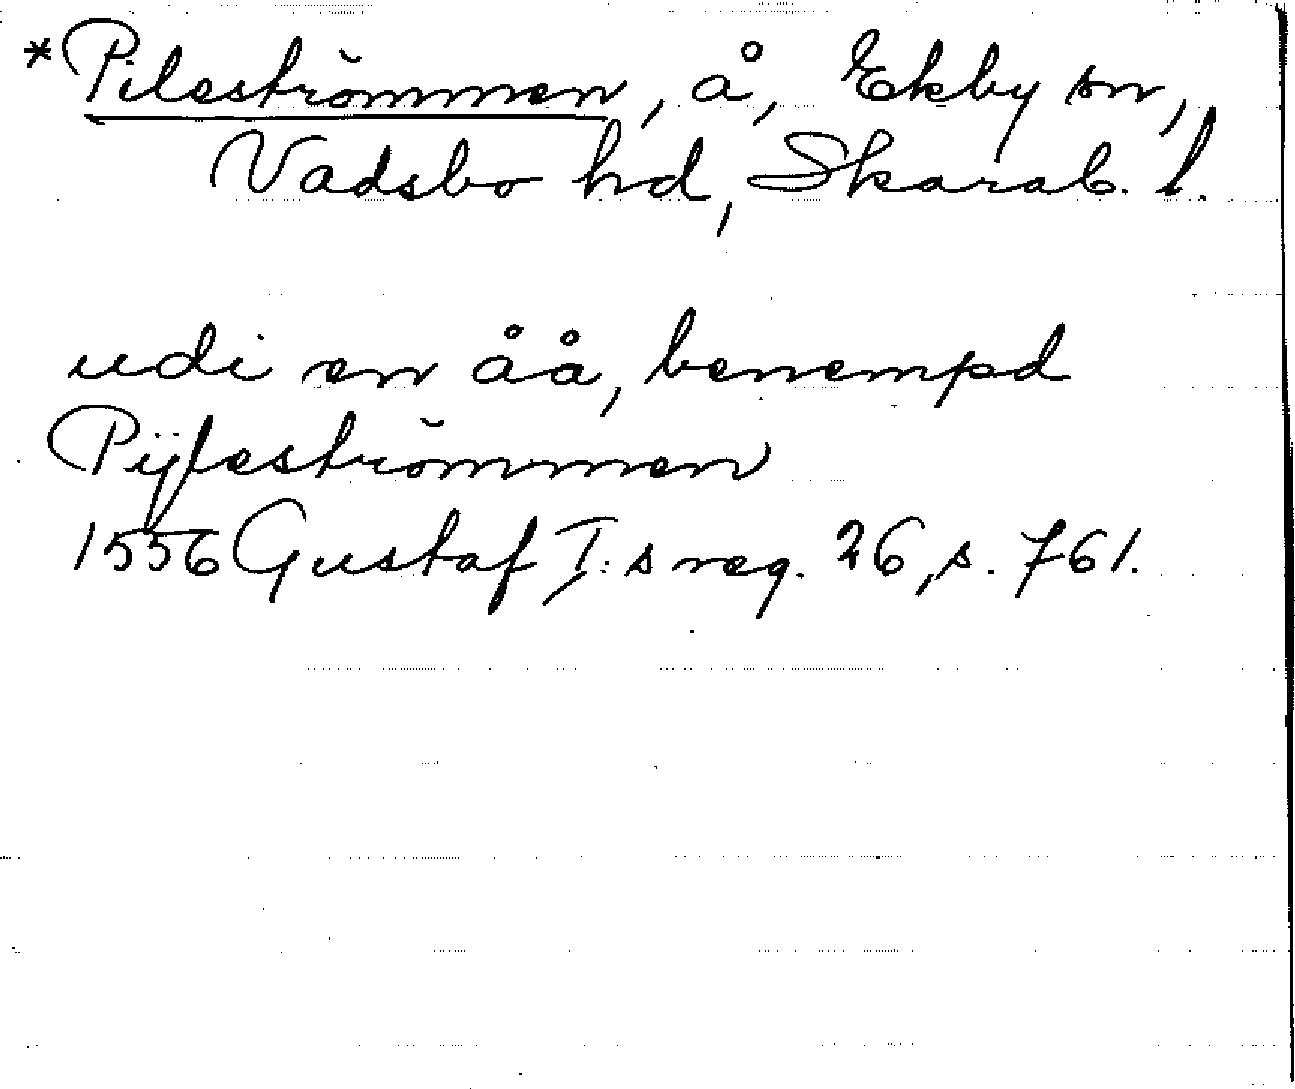 *Pileströmmen, å, Ekby sn,
Vadsbo hd, Skarab. l.
udi en åå, benempd
Pijleströmmen
1556 Gustaf I:s reg. 26, s. 761.